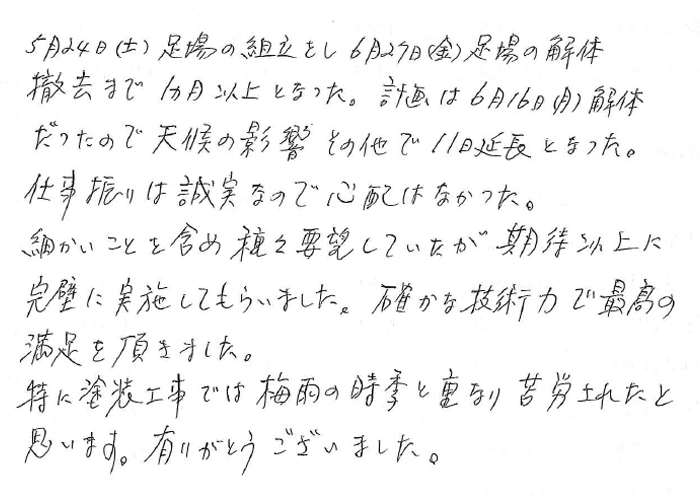 5月24日(土)足場の組立をし6月27日(金)足場の解体
撤去まで1カ月以上となった。計画は6月16日(月)解体
だったので天候の影響その他で11日延長となった。
仕事振りは誠実なので心配はなかった。
細かいことを含め種々要望していたが期待以上に
完璧に実施してもらいました。確かな技術力で最高の
満足を頂きました。
特に塗装工事では梅雨の時季と重なり苦労されたと
思います。有りがとうございました。